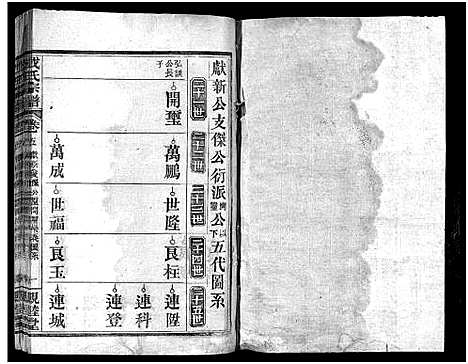 獻新公支傑公衍派開璽公以下五代圖系
二十一世 二十二世 二十三世 二十四世 二十五世
公長子
開璽 萬鵬 世隆 良 連陞
連科
連登
萬成 世福 良玉 連城
氏宗譜 卷五 親睦堂